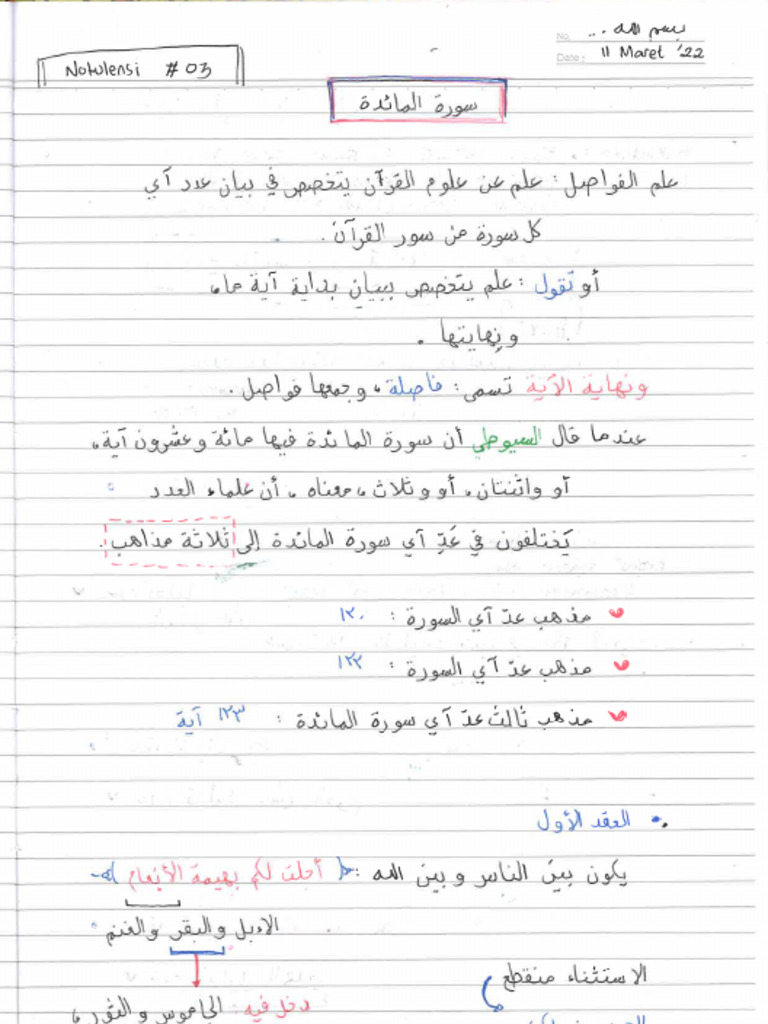 بسم الله ...
No.
Date: 11 Maret '22
Notulensi #03
سورة المائدة
علم الفواصل: علم عن علوم القرآن يتخصص في بيان عدد آي
كل سورة من سور القرآن.
أو تقول: علم يتخصص ببيان بداية آية ما،
ونهايتها.
ونهاية الآية تسمى: فاصلة، وجمعها فواصل.
عندما قال السيوطي أن سورة المائدة فيها مائة وعشرون آية،
أو واثنتان، أو وثلاث، معناه، أن علماء العدد
يختلفون في عَدِّ آي سورة المائدة إلى ثلاثة مذاهب.
مذهب عدّ آي السورة: ١٢٠
مذهب عدّ آي السورة: ١٢٢
مذهب ثالث عدّ آي سورة المائدة: ١٢٣ آية
• العقد الأول
يكون بين الناس و بين الله: ﴿أحلت لكم بهيمة الأنعام﴾
الإبل والبقر والغنم
الاستثناء منقطع
دخل فيه: الجاموس و الثور،